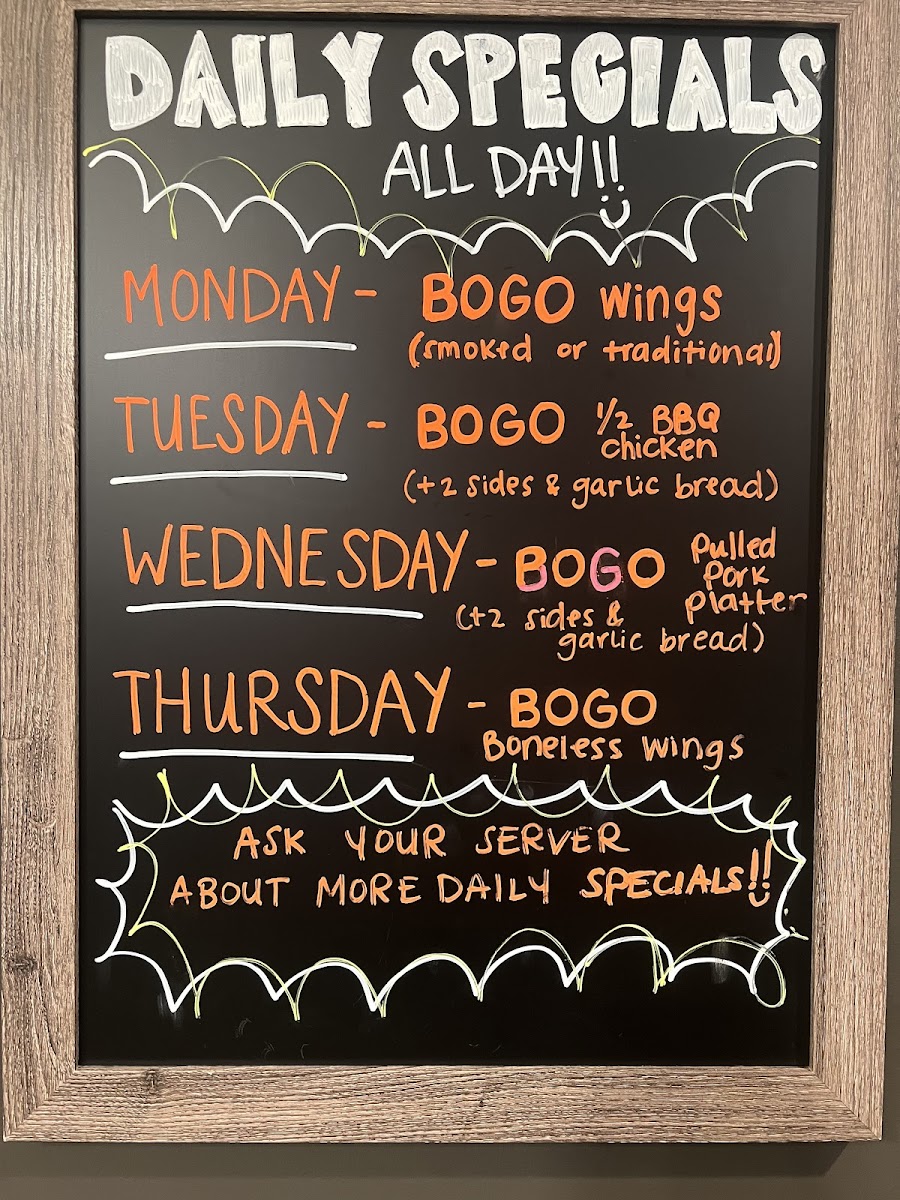 DAILY SPECIALS
ALL DAY!!
MONDAY - BOGO Wings
(smoked or traditional)
TUESDAY - BOGO 1/2 BBQ
chicken
(+2 sides & garlic bread)
WEDNESDAY - BOGO Pulled
Pork
platter
(+2 sides &
garlic bread)
THURSDAY - BOGO
Boneless Wings
ASK YOUR SERVER
ABOUT MORE DAILY SPECIALS!!